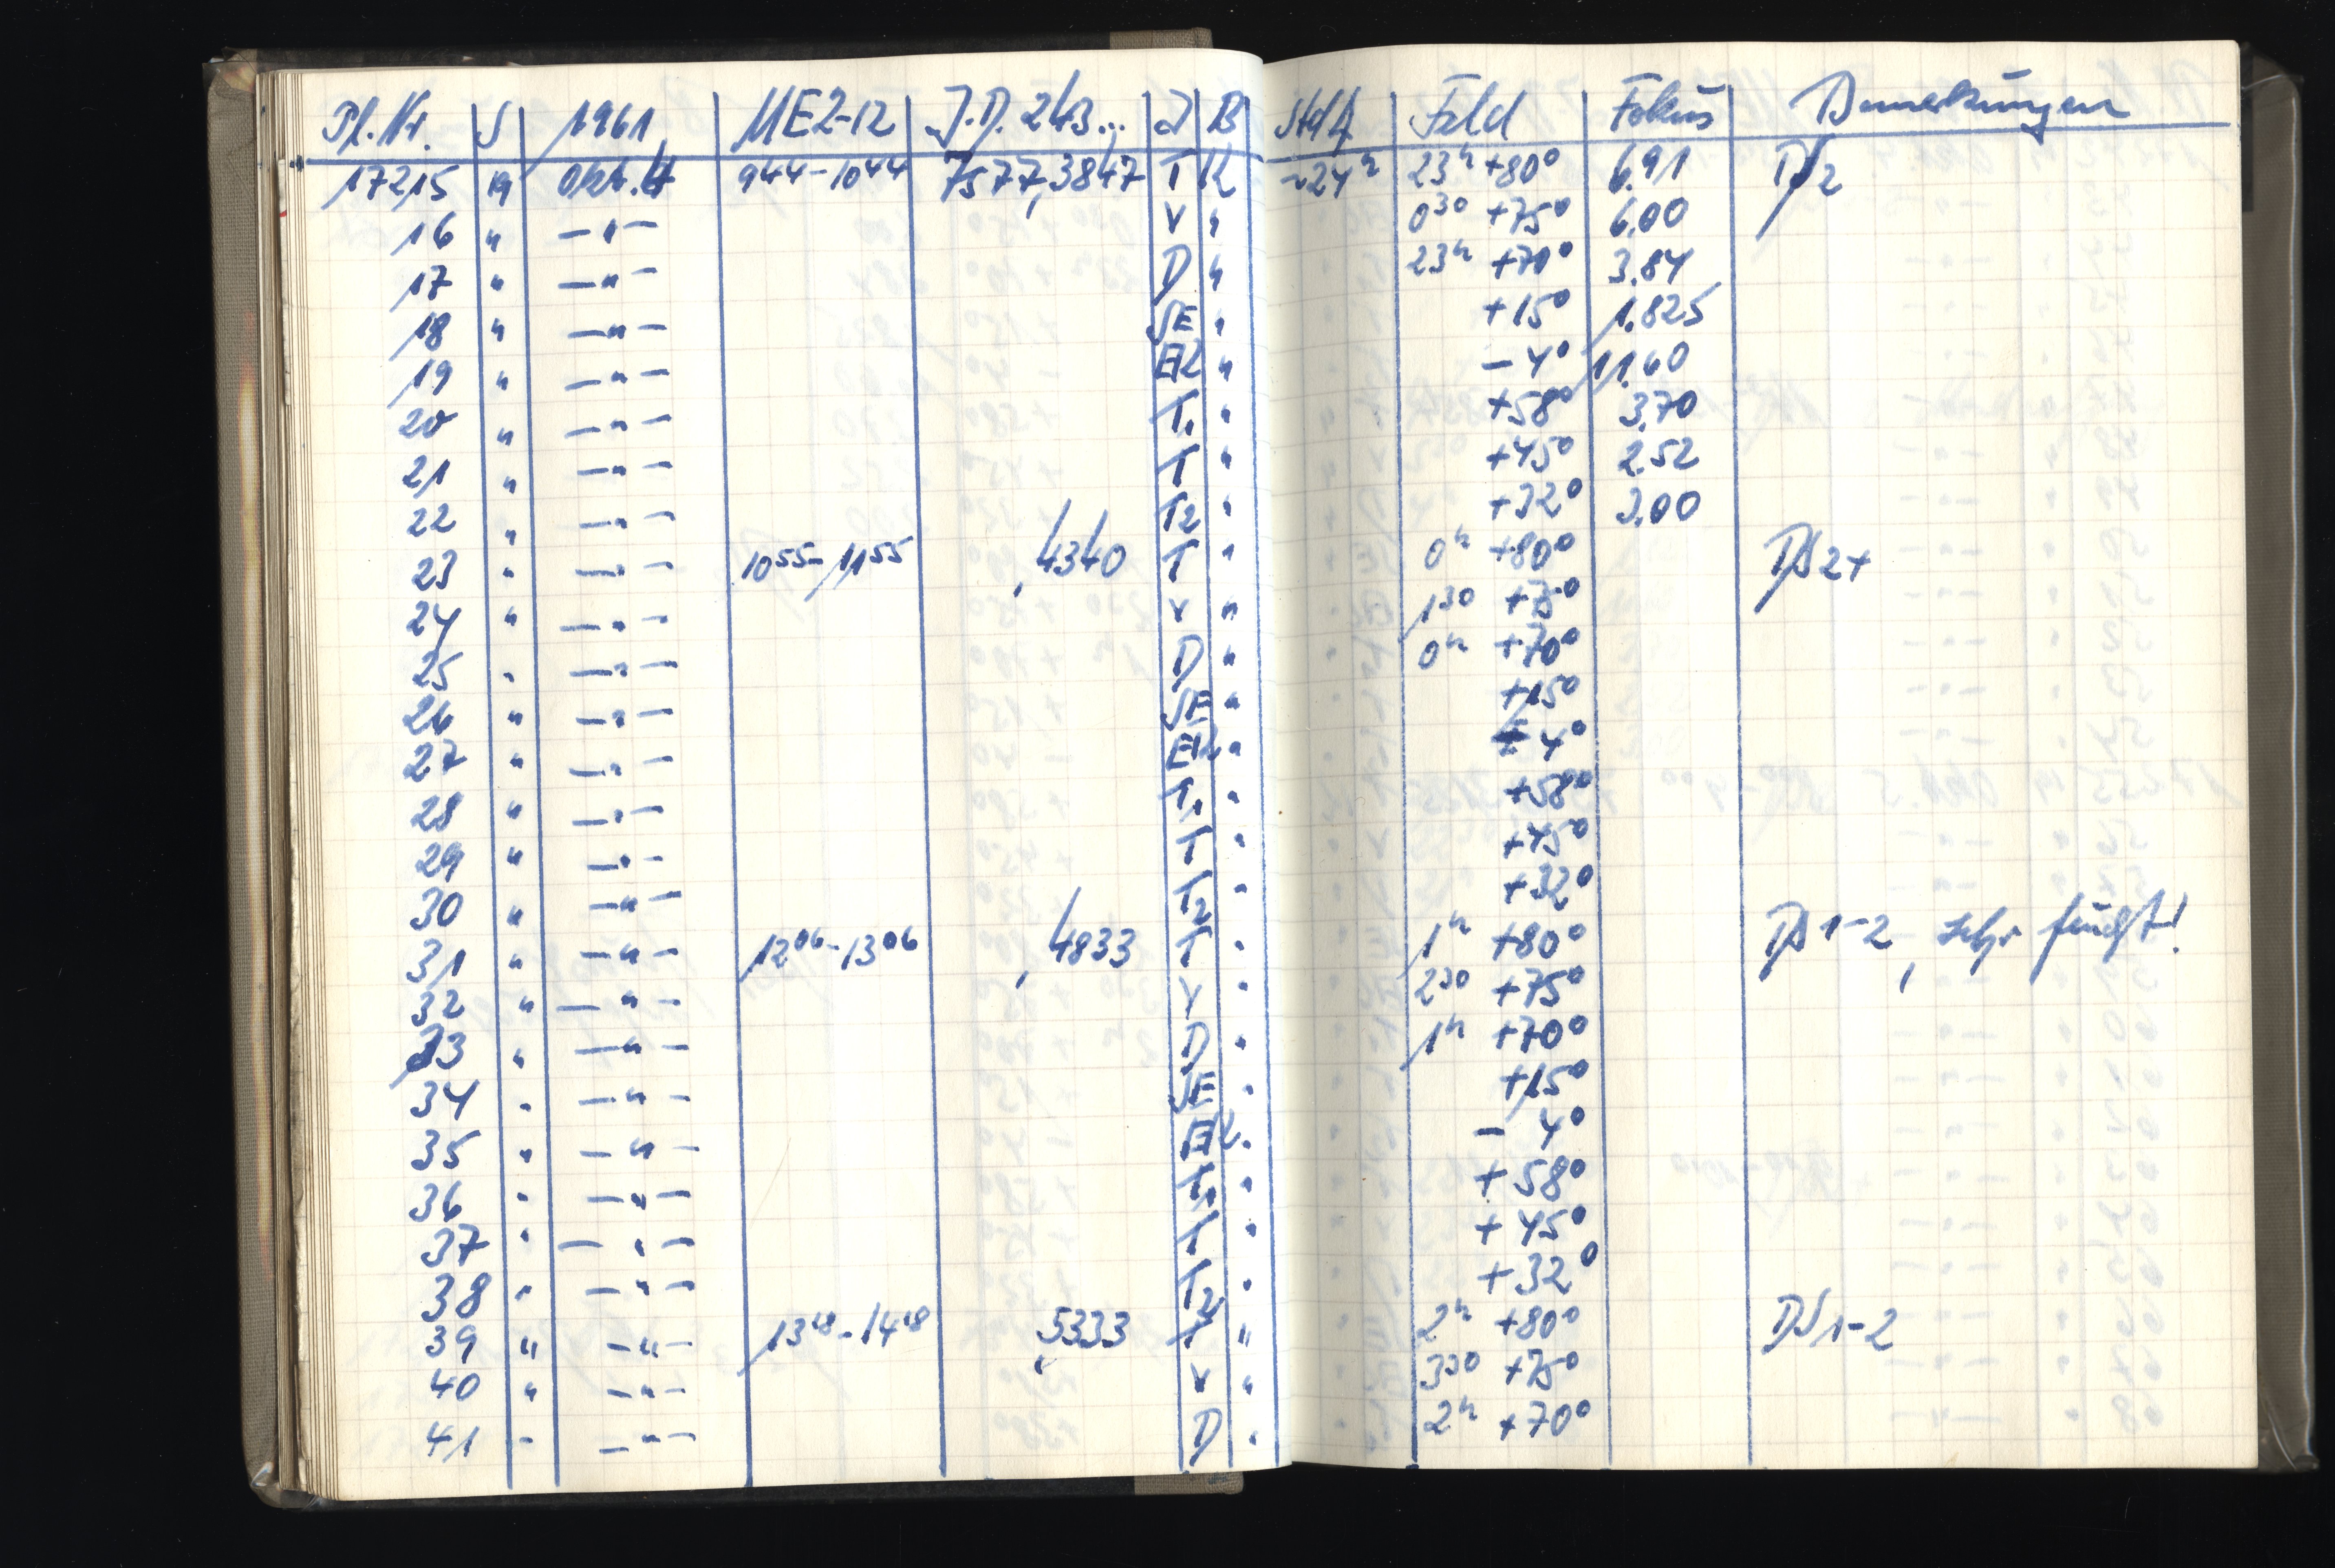 Pl. Nr. S 1961 MEZ-12 J.D. 243... J B Std A Feld Fokus Bemerkungen
17215 19 Okt. 4 9 44 - 10 44 7577,3847 T K ~24h 23h +80° 6.91 DS 2
16 " - " - V " 0 30 +75° 6.00
17 " - " - D " 23h +70° 3.84
18 " - " - SE " +15° 1.825
19 " - " - EK " - 4° 11.60
20 " - " - T1 " +58° 3.70
21 " - " - T " +45° 2.52
22 " - " - T2 " +32° 3.00
23 " - " - 10 55 - 11 55 ,4340 T " 0h +80° DS 2+
24 " - " - V " 1 30 +75°
25 " - " - D " 0h +70°
26 " - " - SE " +15°
27 " - " - EK " - 4°
28 " - " - T1 " +58°
29 " - " - T " +45°
30 " - " - T2 " +32°
31 " - " - 12 06 - 13 06 ,4833 T " 1h +80° DS 1-2, sehr feucht!
32 " - " - V " 2 30 +75°
33 " - " - D " 1h +70°
34 " - " - SE " +15°
35 " - " - EK " - 4°
36 " - " - T1 " +58°
37 " - " - T " +45°
38 " - " - T2 " +32°
39 " - " - 13 18 - 14 18 ,5333 T " 2h +80° DS 1-2
40 " - " - V " 3 30 +75°
41 " - " - D " 2h +70°